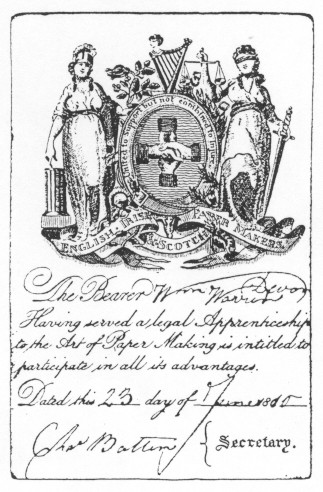 United to support but not combined to injure
ENGLISH, IRISH & SCOTCH PAPER MAKERS.
The Bearer Wm Devon
Having served a legal Apprenticeship
to the Art of Paper Making is intitled to
participate in all its advantages.
Dated this 23 day of June
Chas Batten Secretary.